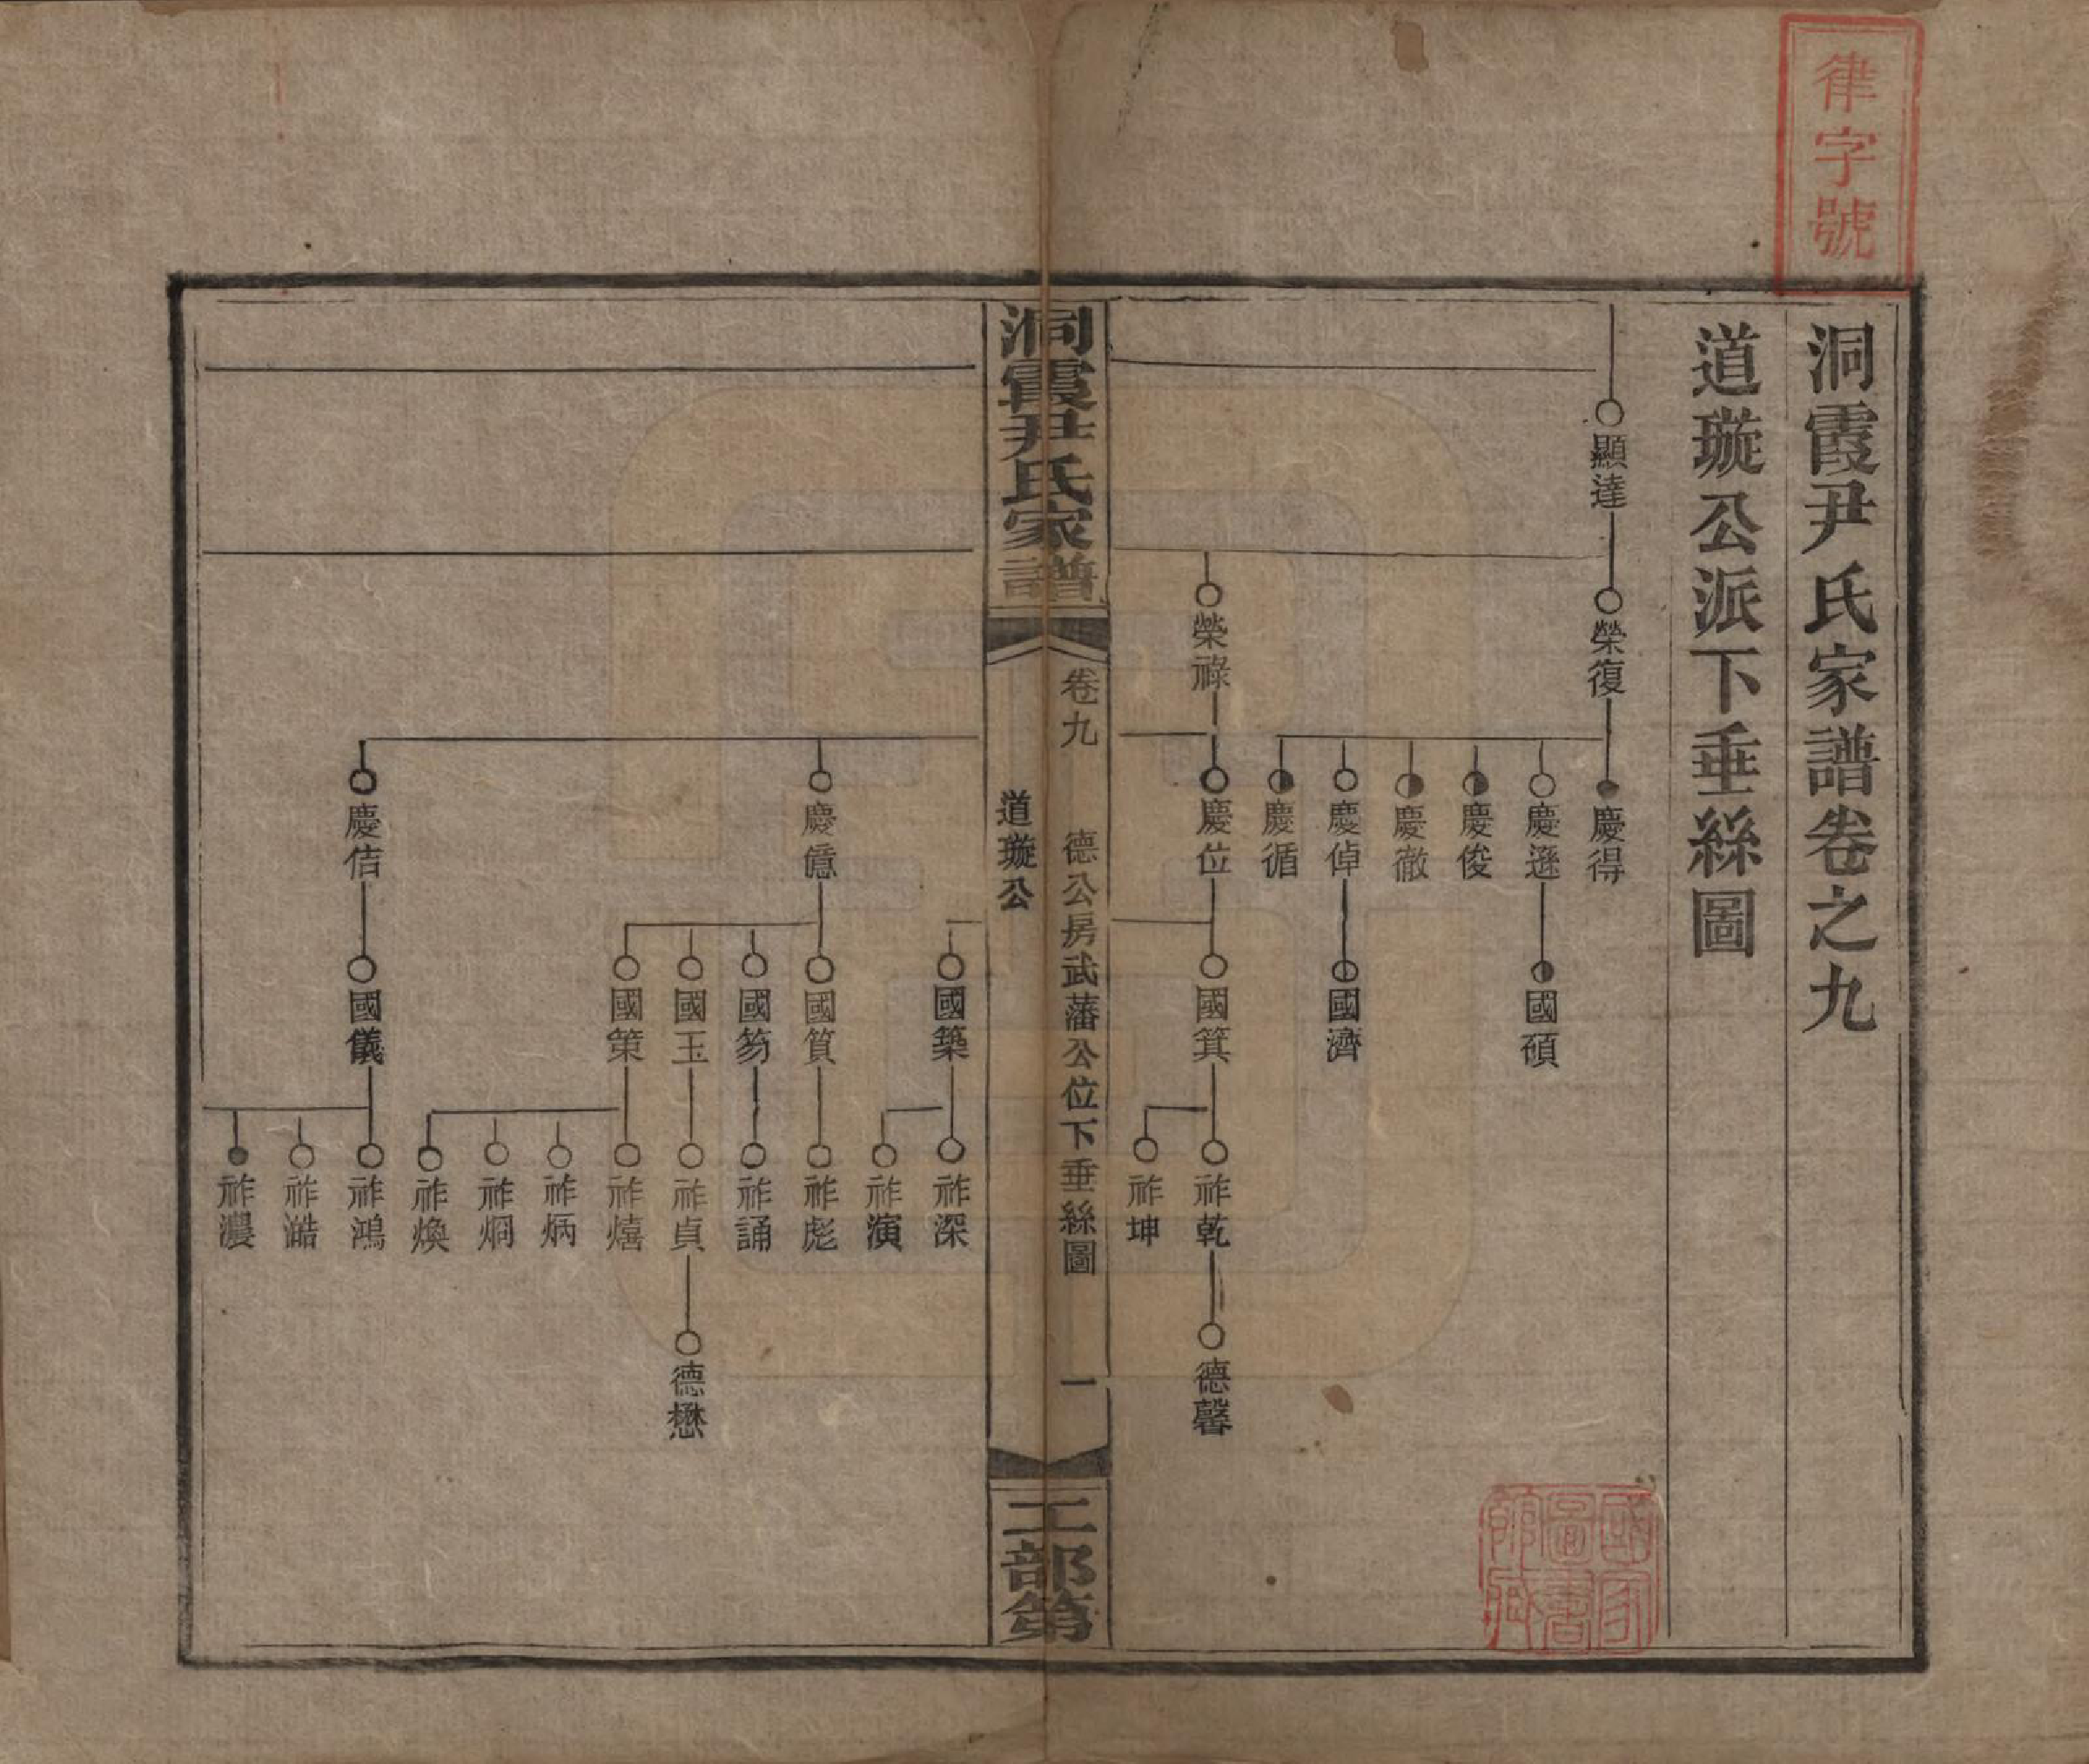 律字號
洞霞尹氏家譜卷之九
道璇公派下垂絲圖
顯達
榮復
慶得
慶遜
國碩
慶俊
慶徹
慶倬
國濟
慶循
榮祿
慶位
國箕
祚乾
德馨
祚坤
國家圖書館藏
洞霞尹氏家譜
卷九
德公房武藩公位下垂絲圖
一
道璇公
工部第
國築
祚深
祚演
慶億
國筼
祚彪
國笏
祚誦
國玉
祚貞
德懋
國策
祚熺
祚炳
祚炯
祚煥
慶佶
國儀
祚鴻
祚澔
祚濃